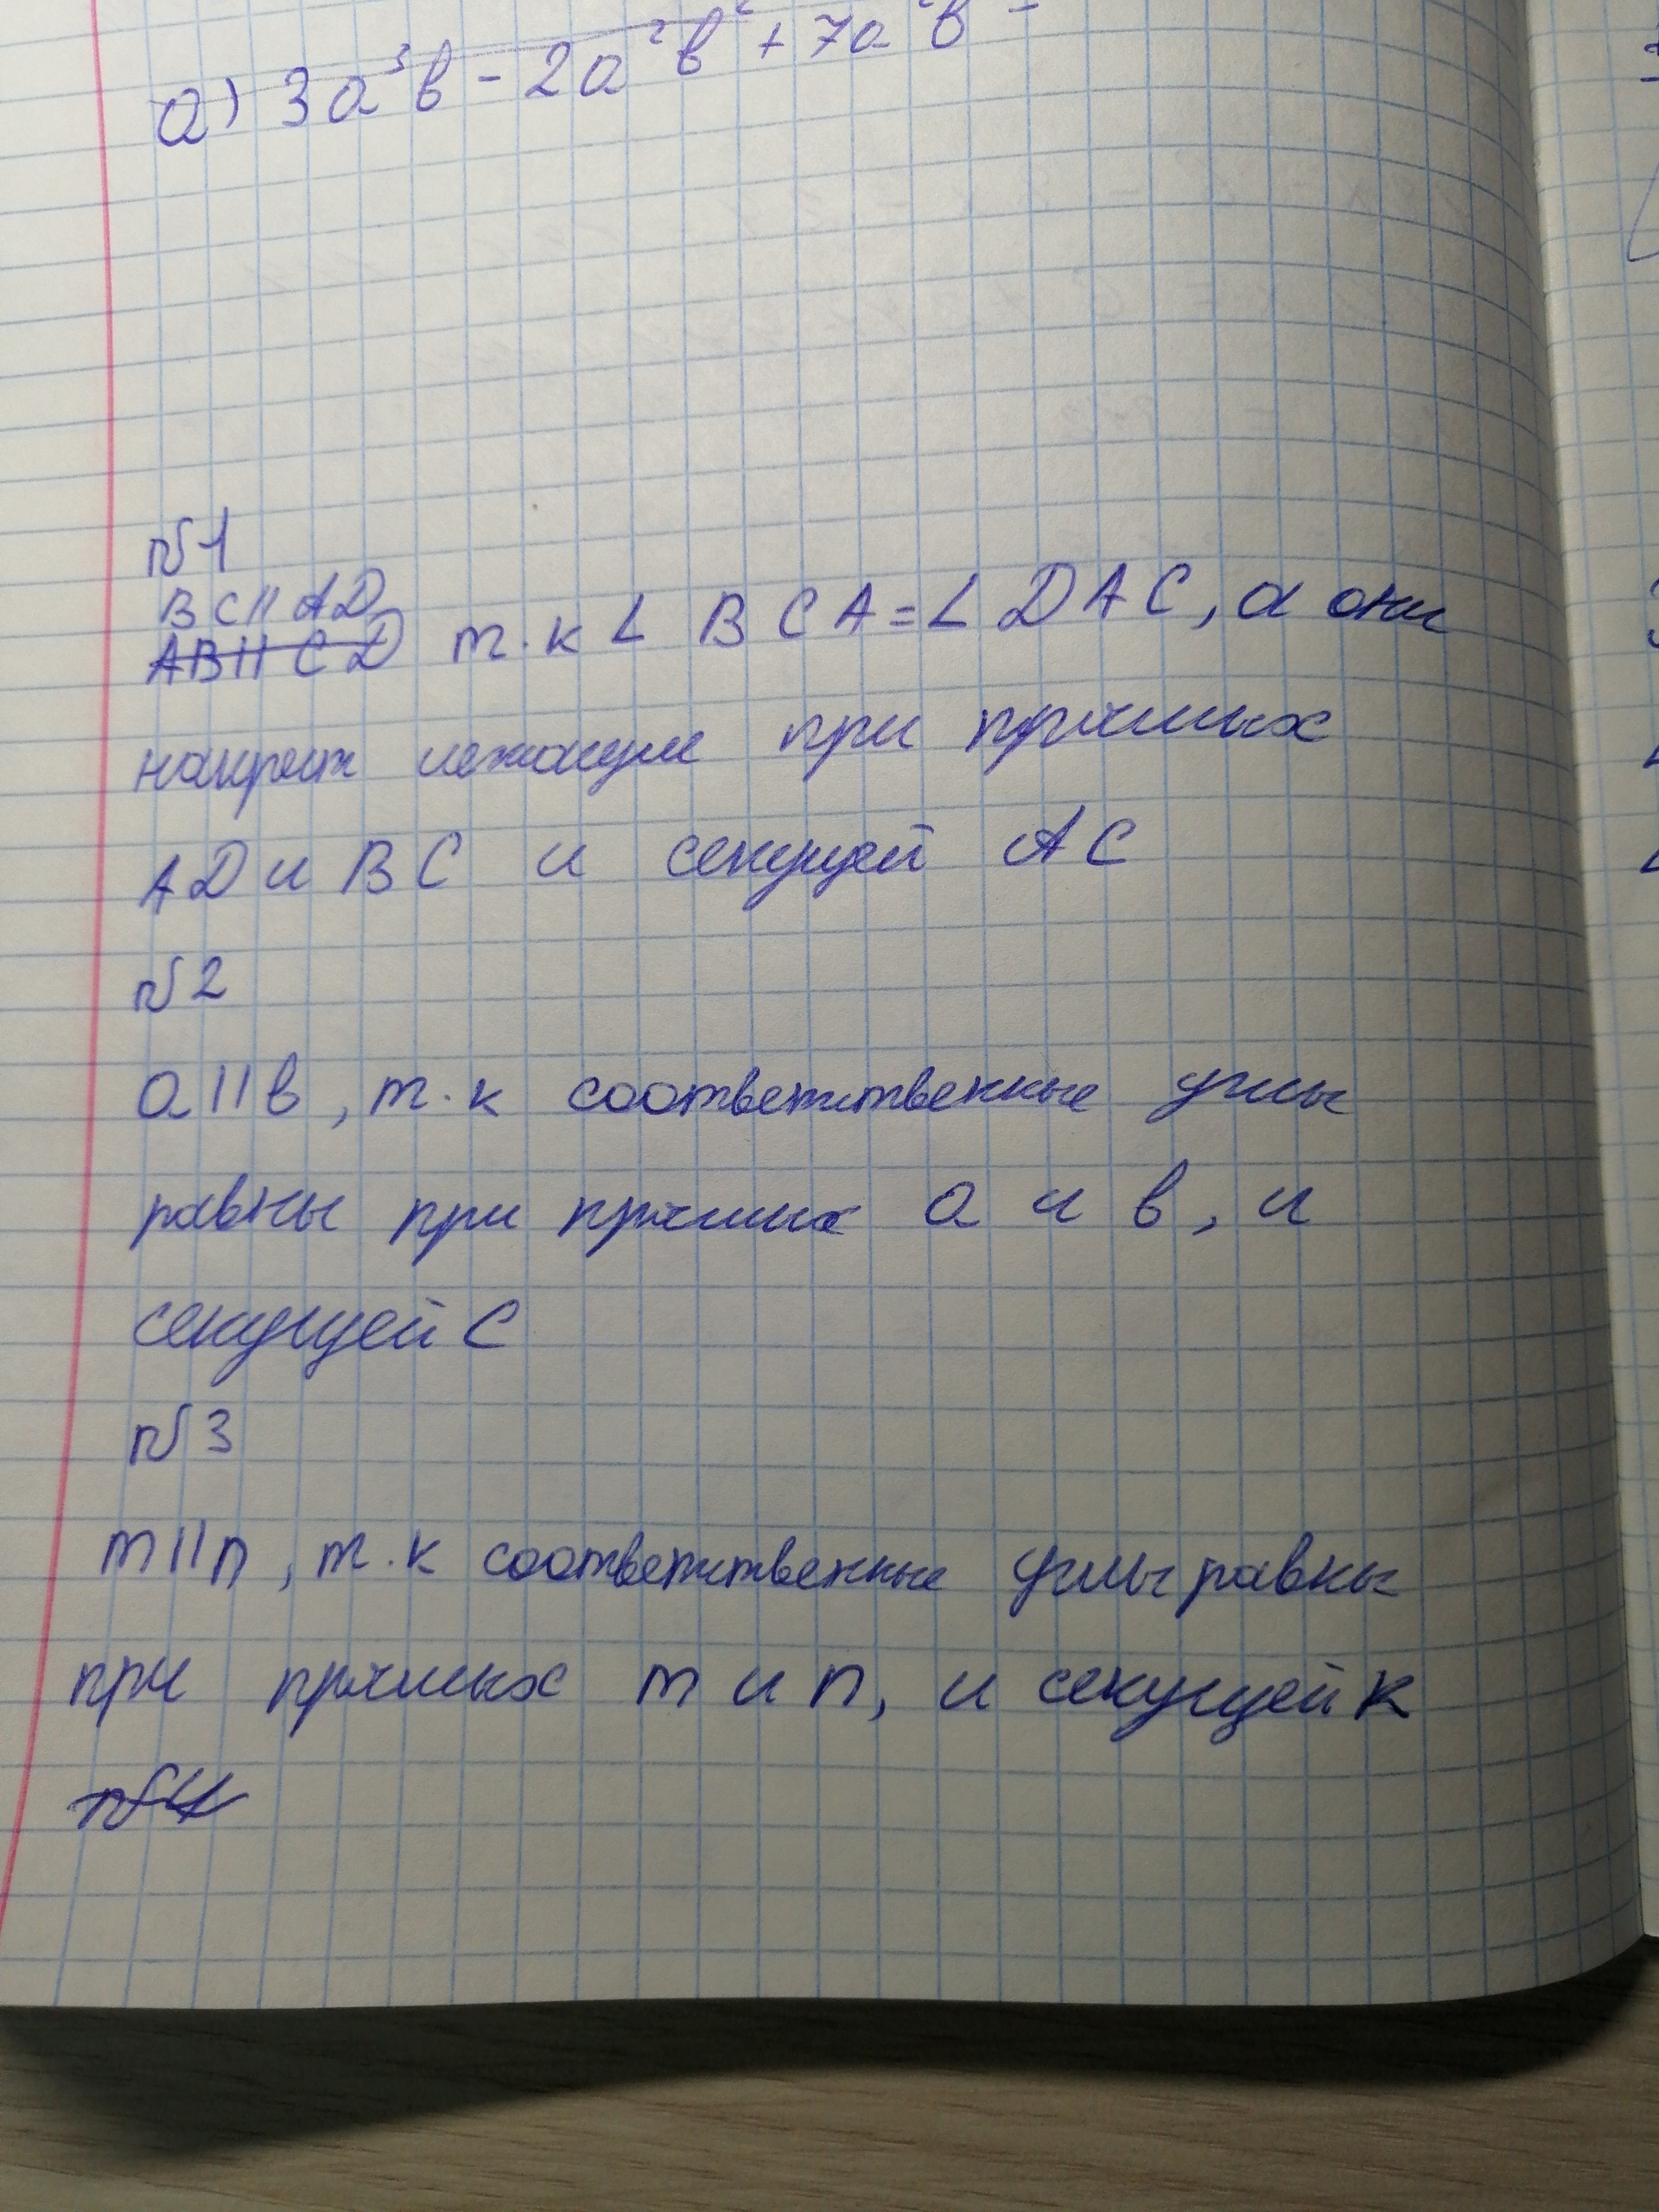 а) 3a³b - 2a²b² + 7a²b -
№1
BC || AD
AB || CD т.к ∠ BCA = ∠ DAC, а они
накрест лежащие при прямых
AD и BC и секущей AC
№2
a || b, т.к соответственные углы
равны при прямых a и b, и
секущей C
№3
m || n, т.к соответственные углы равны
при прямых m и n, и секущей k
№4